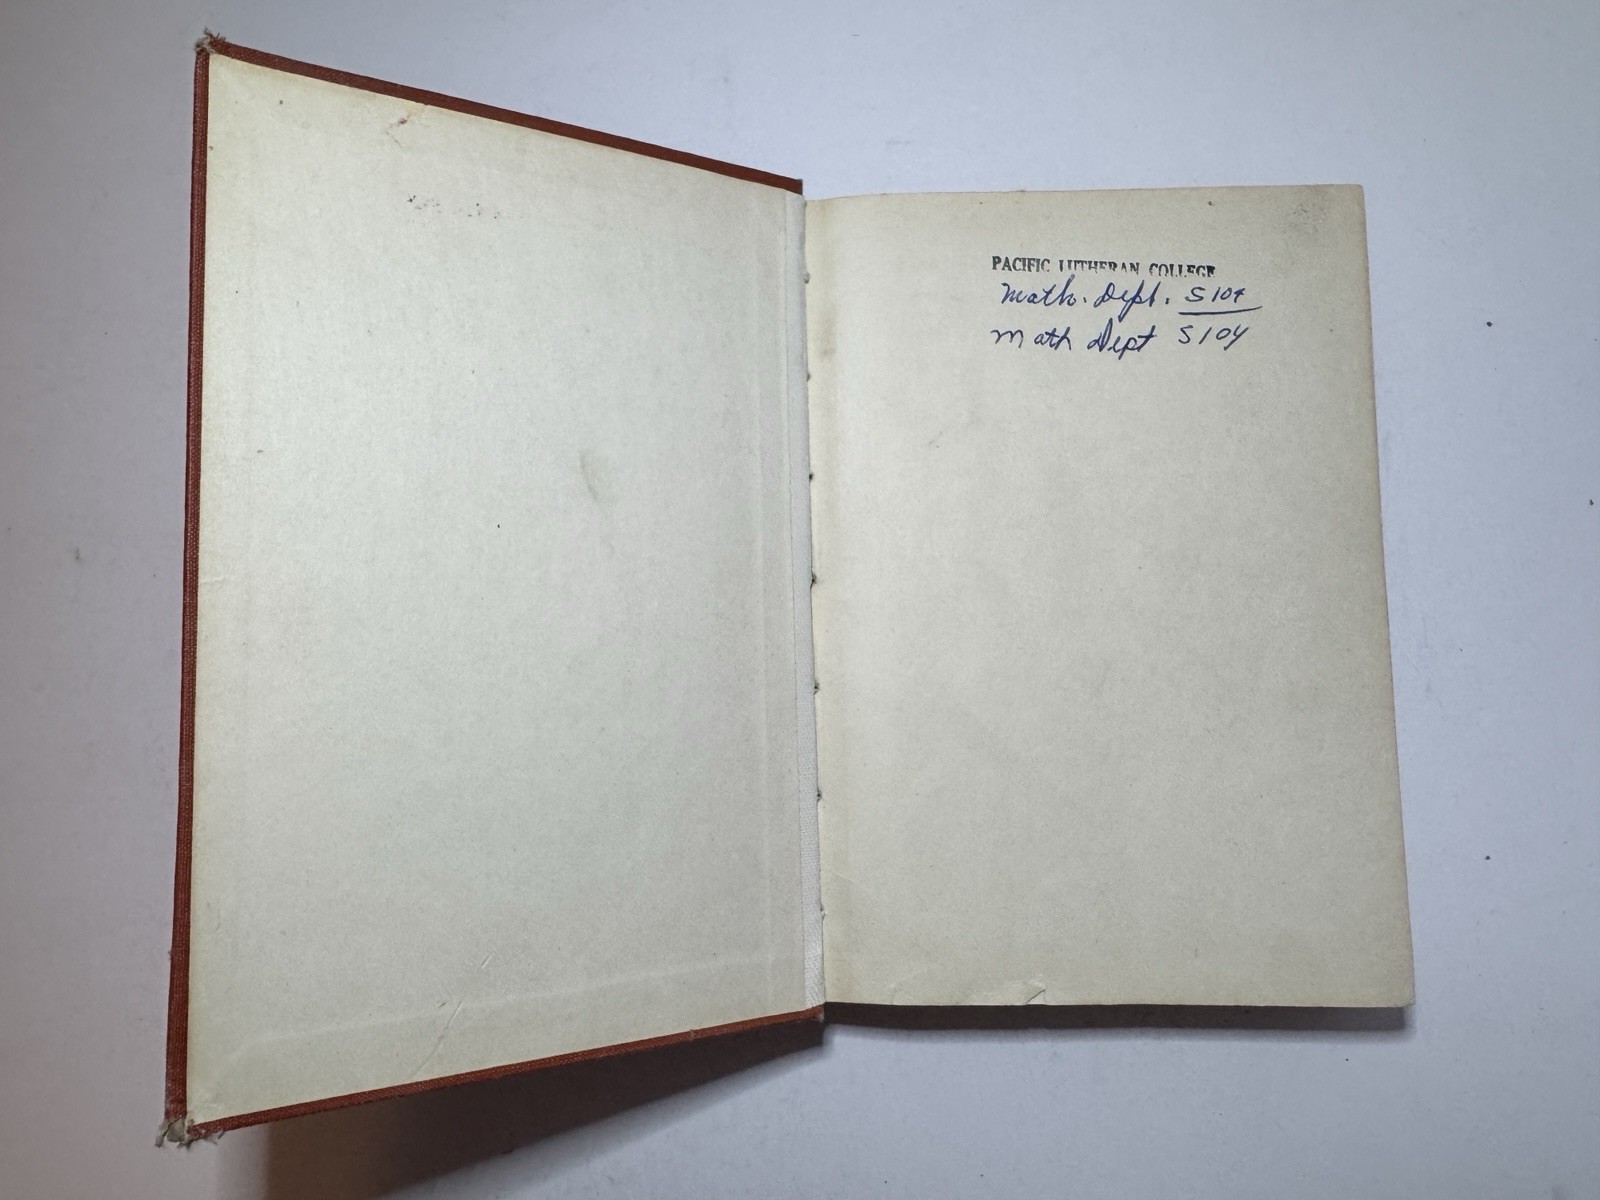 PACIFIC LUTHERAN COLLEGE
Math. Dept. S104
Math Dept S104